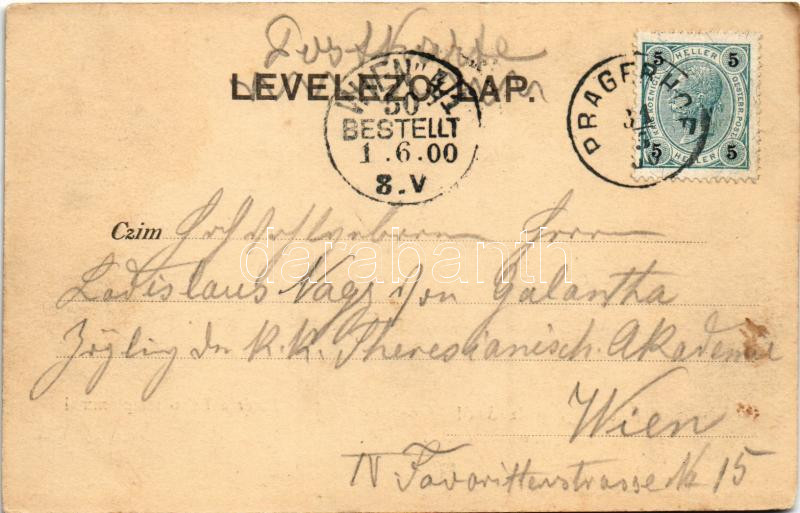 Postkarte
LEVELEZŐ-LAP.
WIEN 4/1
50
BESTELLT
1.6.00
8.V
PRAGERHOF
5 HELLER 5
KAIS. KOENIGL. OESTERR. POST.
5 HELLER 5
Czim Hochwohlgeboren Herrn
Ladislaus Nagy von Galantha
Zögling der k. k. Theresianisch. Akademie
Wien
IV Favoritenstrasse № 15
darabanth